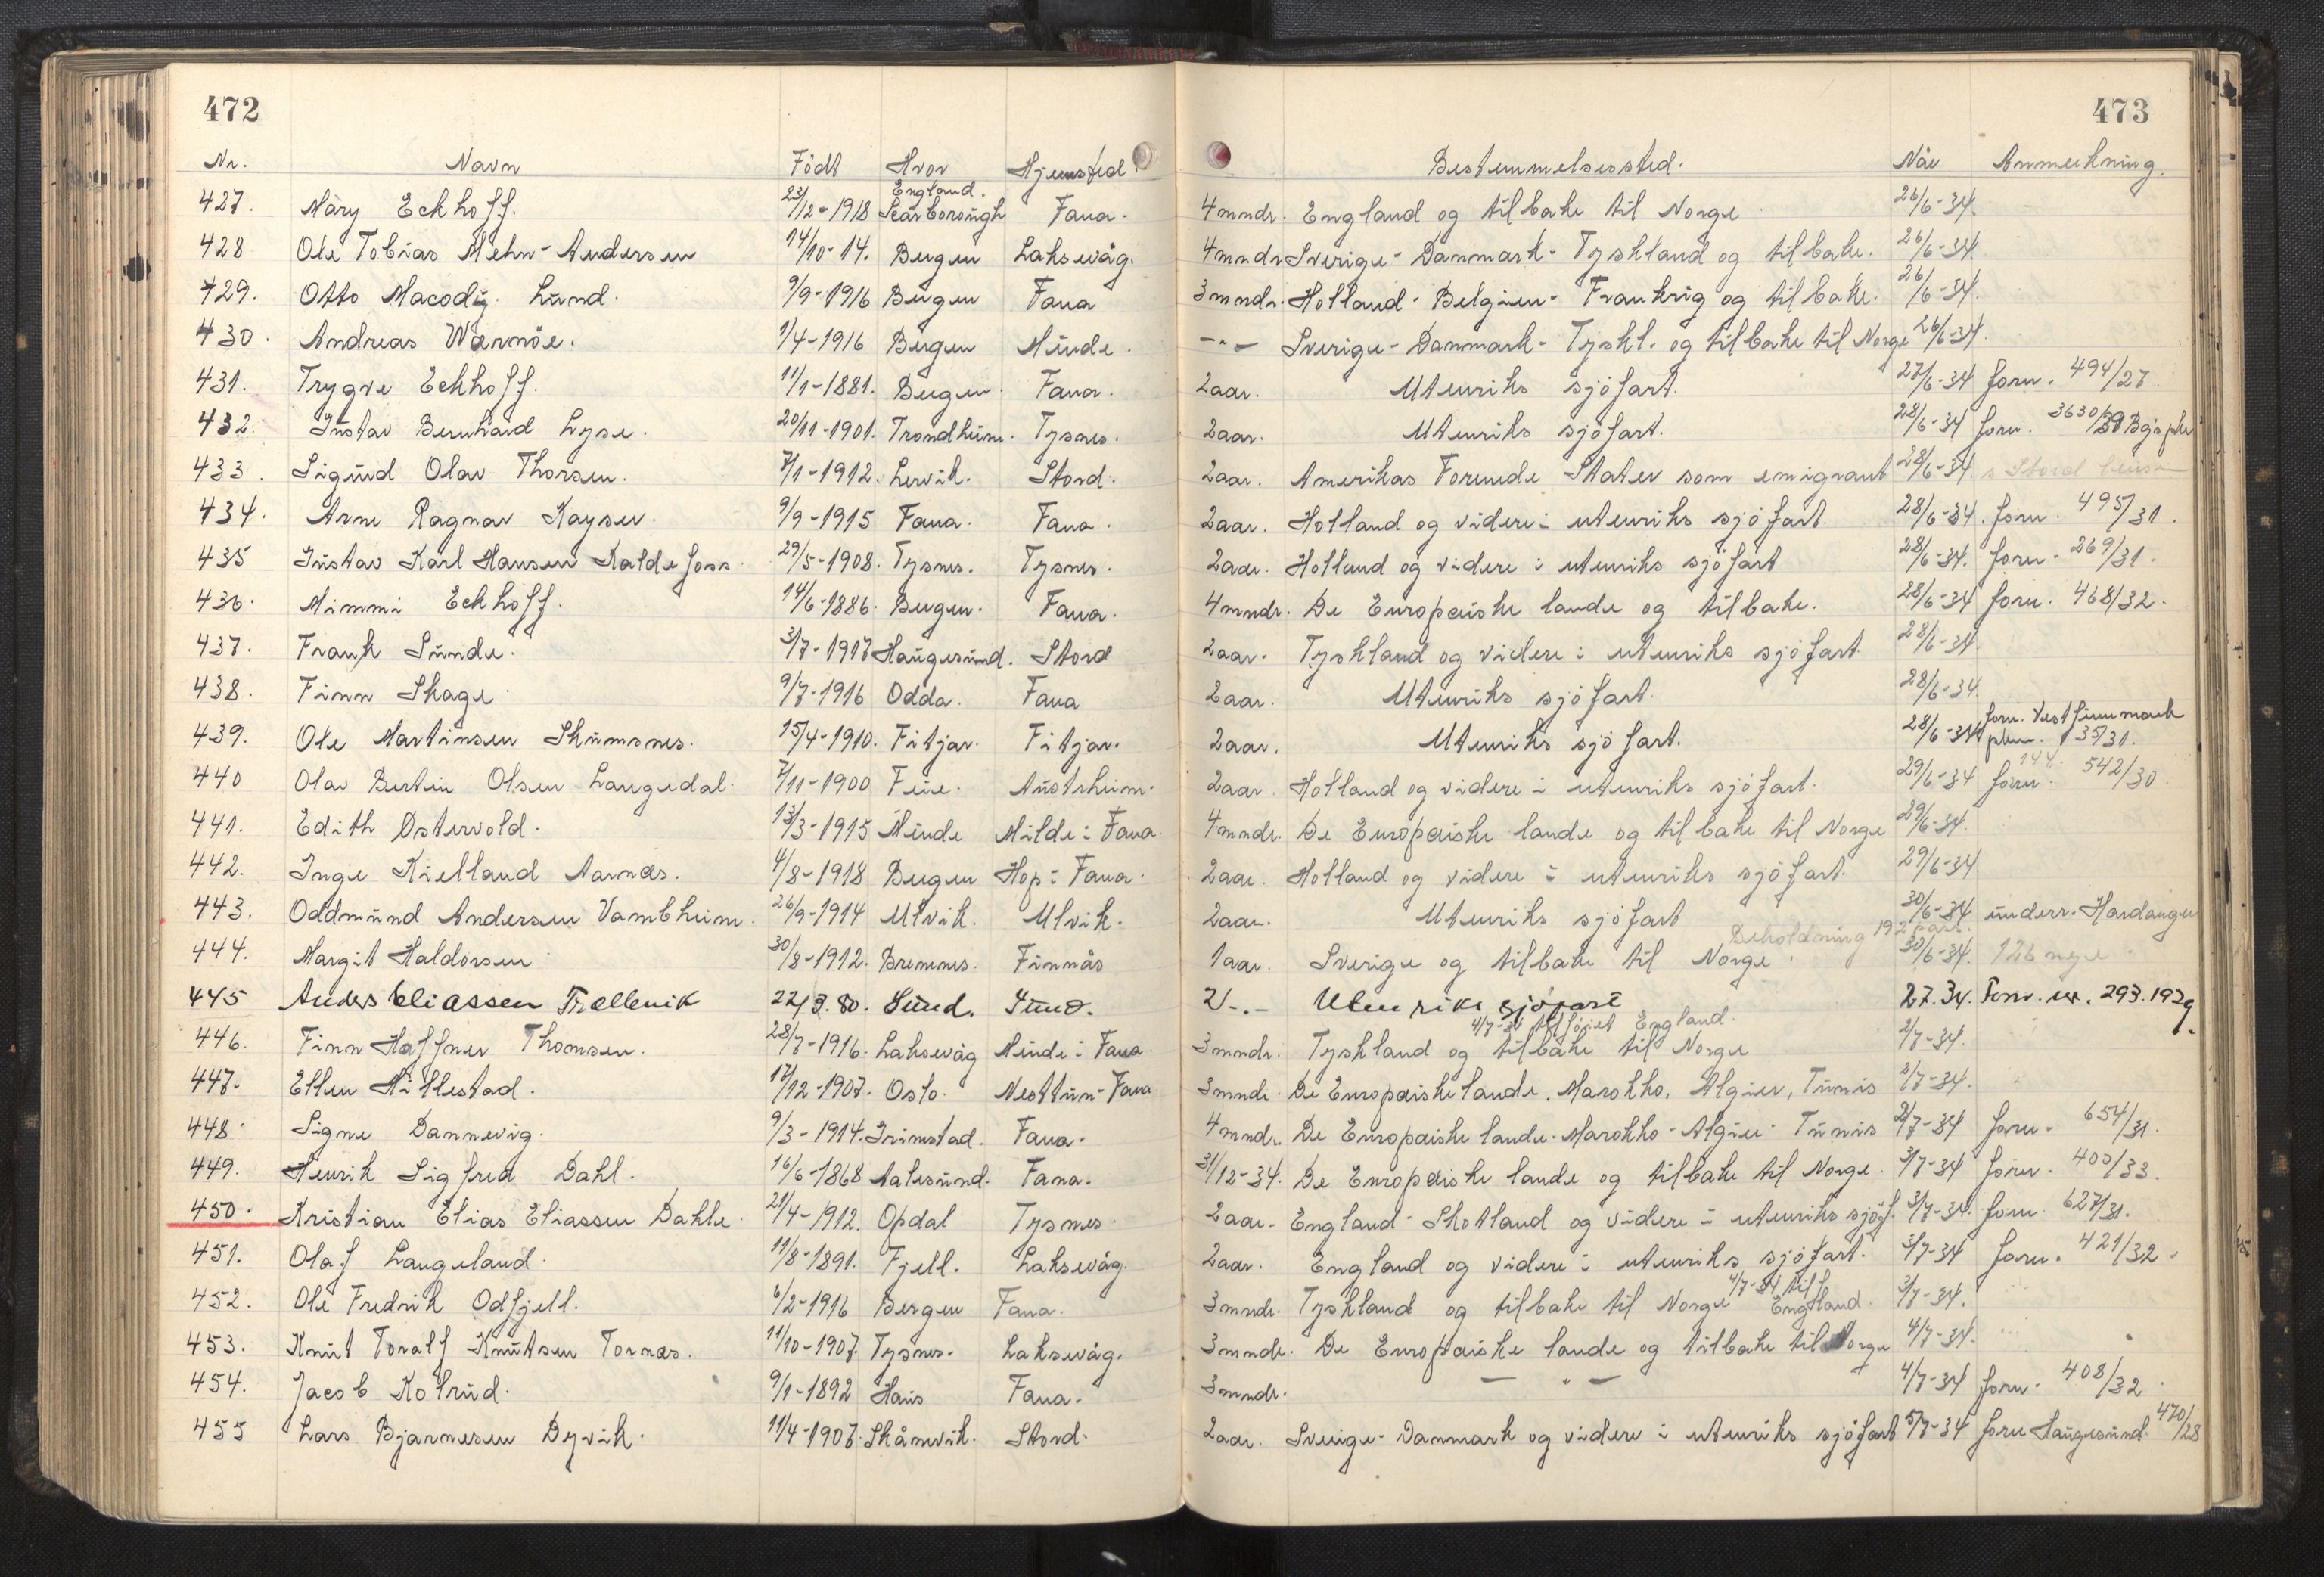 472
Nr. Navn Födt Hvor Hjemsted
427. Mary Eckhoff. 23/12-1918 England. Scarborough Fana.
428 Ole Tobias Mehn-Andersen 14/10-14. Bergen Laksevåg.
429. Otto Macody Lund. 9/9-1916 Bergen Fana
430. Andreas Wærnöe. 1/4-1916 Bergen Minde.
431. Trygve Eckhoff. 11/1-1881. Bergen. Fana.
432. Gustav Bernhard Lyse. 20/11-1901. Trondheim. Tysnes.
433. Sigurd Olav Thorsen. 7/1-1912. Lervik. Stord.
434. Arne Ragnar Kayser. 9/9-1915 Fana. Fana.
435 Gustav Karl Hansen Kaldefoss. 29/5-1908. Tysnes. Tysnes.
436. Mimmi Eckhoff. 14/6-1886. Bergen. Fana.
437. Frank Sunde. 3/7-1917 Haugesund. Stord
438. Finn Skage 9/7-1916 Odda. Fana
439. Ole Martinsen Skumsnes. 15/4-1910. Fitjar. Fitjar.
440 Olav Bertin Olsen Langedal. 7/11-1900 Feie. Austrheim.
441. Edith Ostervold. 13/3-1915 Minde Milde i Fana
442. Inge Kielland Aarnæs. 4/8-1918 Bergen Hop i Fana.
443. Oddmund Andersen Vambheim. 26/9-1914 Ulvik. Ulvik.
444. Margit Haldorsen 30/8-1912. Bremnes. Finnås
445 Anders Eliassen Trellevik 22/3.80. Sund. Sund.
446. Finn Haffner Thomsen. 28/7-1916. Laksevåg Minde i Fana.
447. Ellen Hillestad. 17/12-1907. Oslo. Nesttun-Fana
448. Signe Dannevig. 9/3-1914. Grimstad. Fana.
449. Henrik Sigfred Dahl. 16/6-1868 Aalesund. Fana.
450. Kristian Elias Eliassen Dahle. 21/4-1912. Opdal Tysnes.
451. Olaf Langeland. 11/8-1891. Fjell. Laksevåg.
452. Ole Fredrik Odfjell. 6/2-1916 Bergen Fana.
453. Knut Toralf Knutsen Tornæs. 11/10-1907. Tysnes. Laksevåg.
454. Jacob Kolrud. 9/1-1892 Haus Fana.
455 Lars Bjarnesen Dyvik. 11/4-1907. Skånevik. Stord.
473
Bestemmelsessted. Når Anmerkning.
4mndr. England og tilbake til Norge 26/6-34.
4mndr Sverige-Danmark-Tyskland og tilbake. 26/6-34.
3mndr. Holland-Belgien-Frankrig og tilbake. 26/6-34.
-"- Sverige-Danmark-Tyskl. og tilbake til Norge 26/6-34.
2aar. Utenriks sjöfart. 27/6-34 forn. 494/27.
2aar. Utenriks sjöfart. 28/6-34 forn. 3630/30 Bgs pkr
2aar. Amerikas Forenede Stater som emigrant 28/6-34. s Stord lensm
2aar. Holland og videre i utenriks sjöfart. 28/6-34. forn. 495/31.
2aar. Holland og videre i utenriks sjöfart 28/6-34. forn. 269/31.
4mndr. De Europæiske lande og tilbake. 28/6-34 forn. 468/32.
2aar. Tyskland og videre i utenriks sjöfart 28/6-34.
2aar. Utenriks sjöfart. 28/6-34.
2aar. Utenriks sjöfart. 28/6-34 forn. Vestfinnmark pkm. 135/31.
2aar. Holland og videre i utenriks sjöfart. 29/6-34 forn. 144. 542/30.
4mndr. De Europæiske lande og tilbake til Norge 29/6-34.
2aar. Holland og videre i utenriks sjöfart. 29/6-34.
2aar. Utenriks sjöfart 30/6-34 underr. Hardanger
Beholdning 192 pass.
1aar. Sverige og tilbake til Norge. 30/6-34. 126 nye
2 -.- Utenriks sjöfart 2.7.34. Forn. nr. 293.1929.
4/7-34 tilföiet England.
3mndr. Tyskland og tilbake til Norge 2/7-34.
3mndr. De Europæiske lande. Marokko. Algier, Tunis 2/7-34.
4mndr. De Europæiske lande. Marokko-Algier-Tunis 2/7-34 forn. 654/31.
31/12-34. De Europæiske lande og tilbake til Norge. 3/7-34 forn. 400/33.
2aar. England-Skotland og videre i utenriks sjöf. 3/7-34. forn. 627/31.
2aar. England og videre i utenriks sjöfart. 3/7-34 forn. 421/32.
3mndr. Tyskland og tilbake til Norge 4/7-34 tilf England. 3/7-34.
3mndr. De Europæiske lande og tilbake til Norge 4/7-34.
3mndr. -"- 4/7-34 forn. 408/32.
2aar. Sverige-Danmark og videre i utenriks sjöfart 5/7-34 forn Haugesund. 470/28